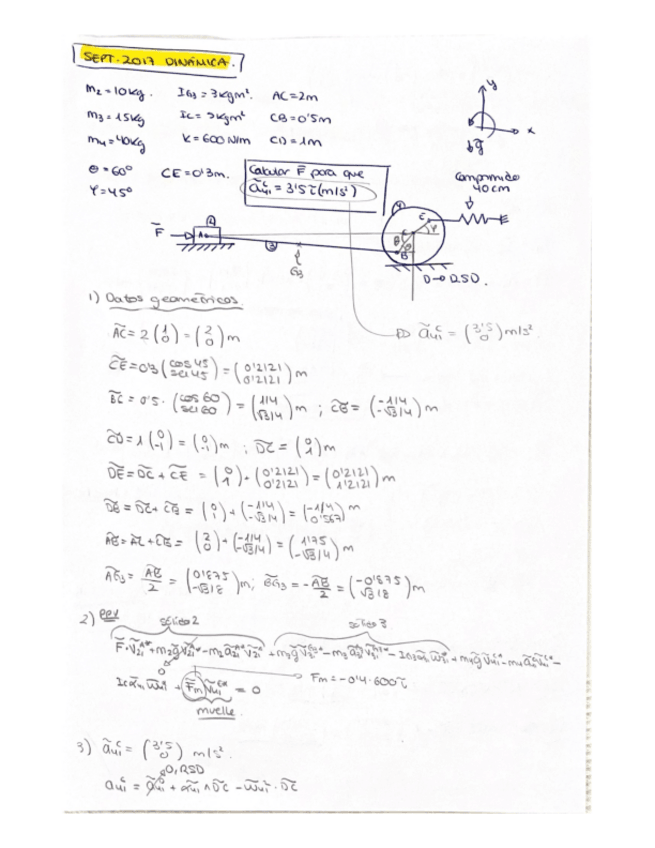 SEPT. 2017 DINÁMICA.
m₂ = 10kg. IG₃ = 3kgm². AC = 2m
m₃ = 15kg Ic = 5kgm² CB = 0'5m
m₄ = 40kg K = 600 N/m CD = 1m
θ = 60° CE = 0'3m.
φ = 45°
Calcular F̄ para que
ā₄₁ᶜ = 3'5 ī (m/s²)
y
x
ḡ
Comprimido
40cm
F̄ 2 A 3 G₃ 4 C E φ θ B
D → RSD.
1) Datos geométricos.
A̅C̅ = 2 (1 0) = (2 0) m
ā₄₁ᶜ = (3'5 0) m/s²
C̅E̅ = 0'3 (cos 45 sen 45) = (0'2121 0'2121) m
B̅C̅ = 0'5 · (cos 60 sen 60) = (1/4 √3/4) m ; C̅B̅ = (-1/4 -√3/4) m
C̅D̅ = 1 (0 -1) = (0 -1) m ; D̅C̅ = (0 1) m
D̅E̅ = D̅C̅ + C̅E̅ = (0 1) + (0'2121 0'2121) = (0'2121 1'2121) m
D̅B̅ = D̅C̅ + C̅B̅ = (0 1) + (-1/4 -√3/4) = (-1/4 0'567) m
A̅B̅ = A̅C̅ + C̅B̅ = (2 0) + (-1/4 -√3/4) = (1'75 -√3/4) m
A̅G̅₃ = A̅B̅/2 = (0'875 -√3/8) m; B̅G̅₃ = -A̅B̅/2 = (-0'875 √3/8) m
2) PPV
sólido 2 sólido 3
F̄·v̄₂₁ᴬ* + m₂ḡv̄₂₁ᴬ* - m₂ā₂₁ᴬv̄₂₁ᴬ* + m₃ḡv̄₃₁ᴳ³* - m₃ā₃₁ᴳ³v̄₃₁ᴳ³* - IG₃ᾱ₃₁ω̄₃₁* + m₄ḡv̄₄₁ᶜ* - m₄ā₄₁ᶜv̄₄₁ᶜ* -
Icᾱ₄₁ω̄₄₁* + F̄m v̄₄₁ᴱ* = 0
Fm = -0'4·600 ī
muelle
3) ā₄₁ᶜ = (3'5 0) m/s².
0, RSD
a₄₁ᶜ = ā₄₁ᴰ + ᾱ₄₁ ∧ D̅C̅ - ω̄₄₁² · D̅C̅